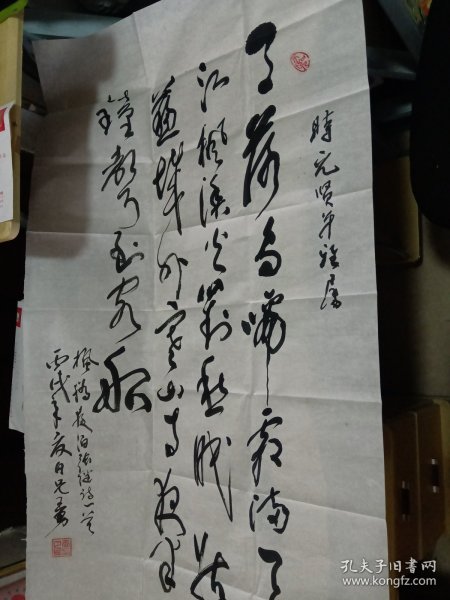 時元贤弟雅属
月落乌啼霜满天
江枫渔火對愁眠姑
蘇城外寒山寺夜半
鐘聲到客船
楓橋夜泊張继诗一首
丙戌年夏月
孔夫子旧书网
www.kongfz.com